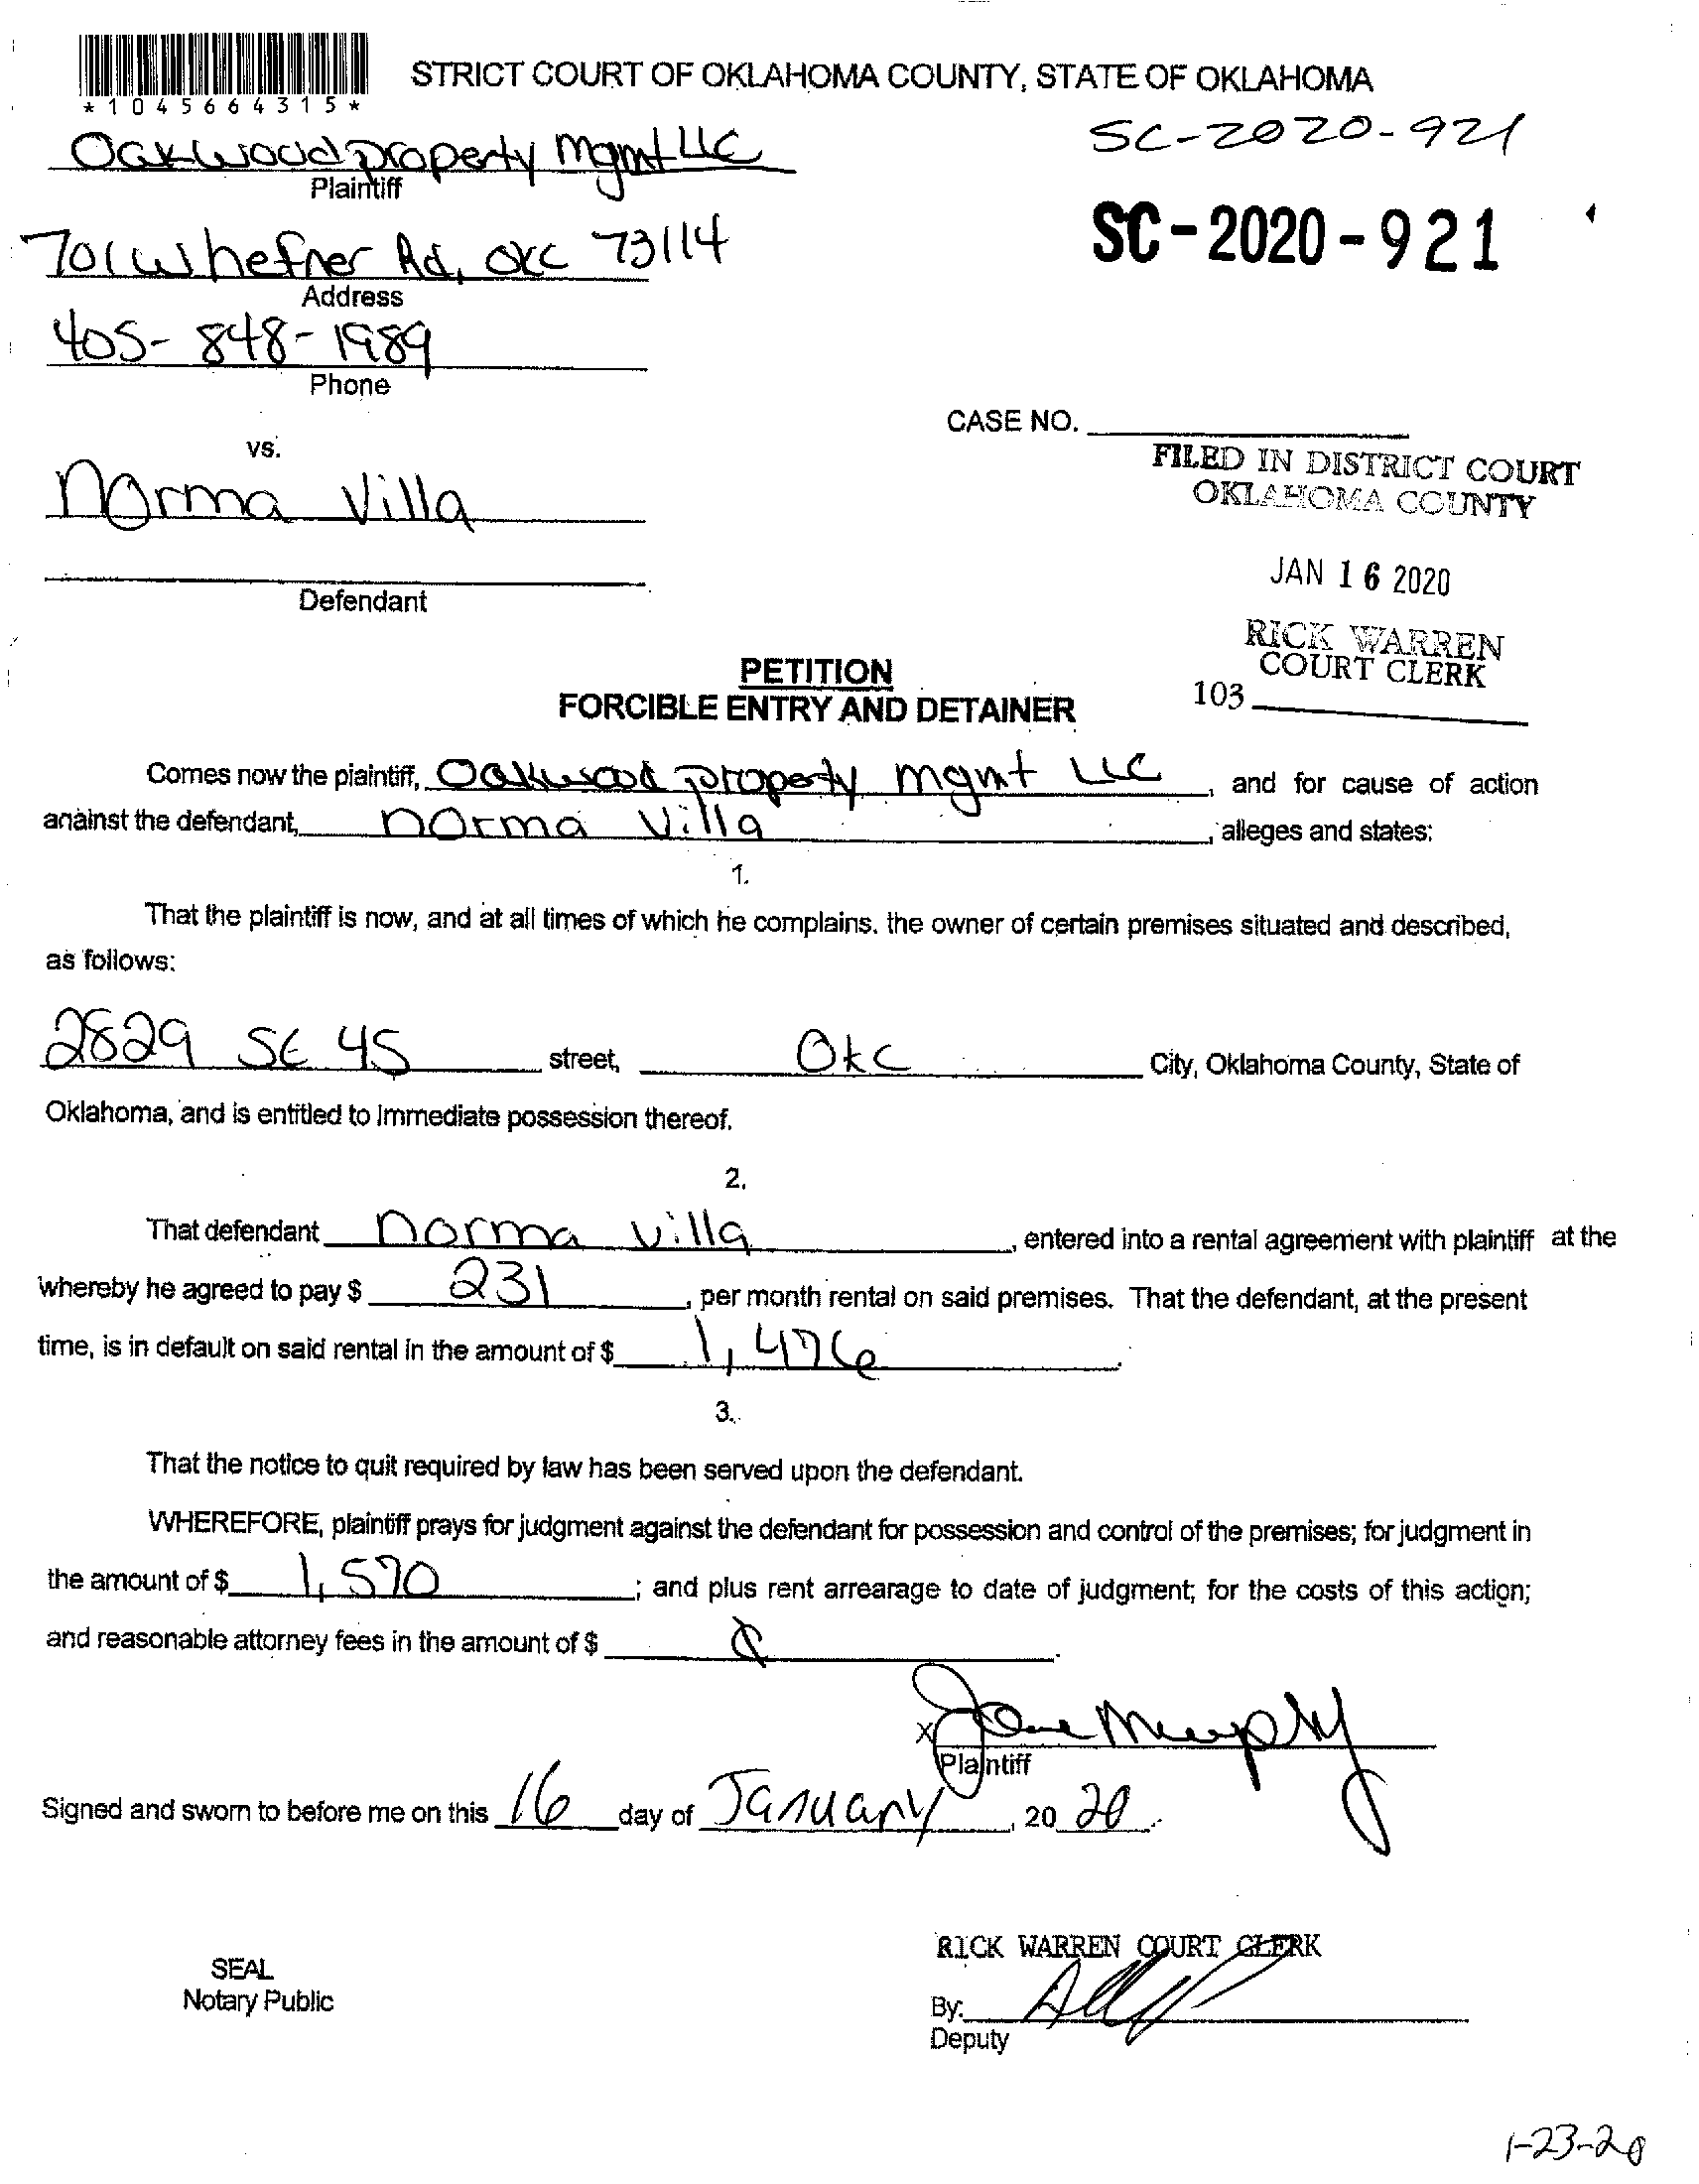 *1045664315*
STRICT COURT OF OKLAHOMA COUNTY, STATE OF OKLAHOMA
Oakwood property mgmt LLC
SC-2020-921
Plaintiff
SC-2020-921
701 W hefner Rd, OKC 73114
Address
405-848-1989
Phone
CASE NO.
vs.
FILED IN DISTRICT COURT
OKLAHOMA COUNTY
norma Villa
JAN 16 2020
Defendant
RICK WARREN
COURT CLERK
103
PETITION
FORCIBLE ENTRY AND DETAINER
Comes now the plaintiff, Oakwood property mgmt LLC, and for cause of action
against the defendant, norma Villa, alleges and states:
1.
That the plaintiff is now, and at all times of which he complains. the owner of certain premises situated and described,
as follows:
2829 SE 45 street, Okc City, Oklahoma County, State of
Oklahoma, and is entitled to immediate possession thereof.
2.
That defendant norma villa, entered into a rental agreement with plaintiff at the
whereby he agreed to pay $ 231, per month rental on said premises. That the defendant, at the present
time, is in default on said rental in the amount of $ 1,476.
3.
That the notice to quit required by law has been served upon the defendant.
WHEREFORE, plaintiff prays for judgment against the defendant for possession and control of the premises; for judgment in
the amount of $ 1,570; and plus rent arrearage to date of judgment; for the costs of this action;
and reasonable attorney fees in the amount of $
x Jane Murphy
Plaintiff
Signed and sworn to before me on this 16 day of January, 20 20.
RICK WARREN COURT CLERK
SEAL
Notary Public
By:
Deputy
1-23-20